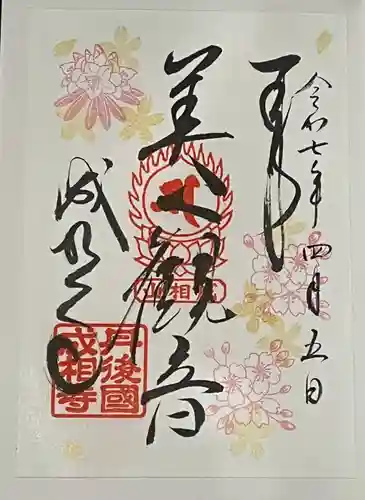 奉拝
令和七年四月五日
美人観音
成相山
成相寺
丹後國
成相寺